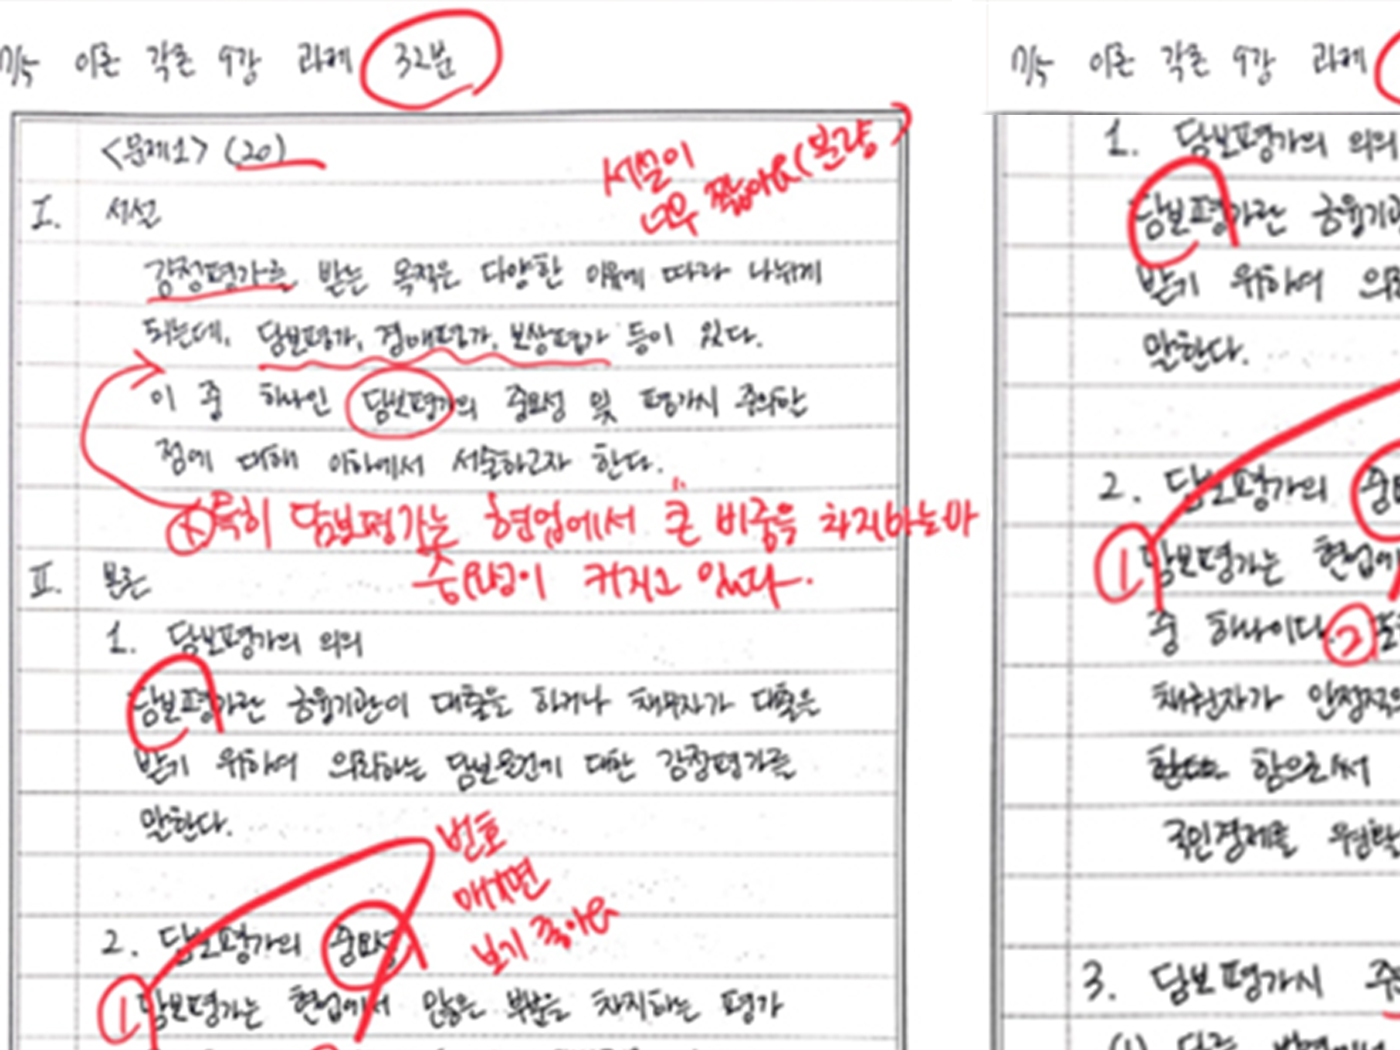 7/5 이론 각론 9강 과제 32분
<문제1> (20)
서설이
너무 짧아요(분량)
I. 서설
감정평가를 받는 목적은 다양한 이유에 따라 나뉘게
되는데, 담보평가, 경매평가, 보상평가 등이 있다.
이 중 하나인 담보평가의 중요성 및 평가시 주의할
점에 대해 이하에서 서술하고자 한다.
특히 담보평가는 현업에서 큰 비중을 차지하는바
중요성이 커지고 있다.
II. 본론
1. 담보평가의 의의
담보평가란 금융기관이 대출을 하거나 채무자가 대출을
받기 위하여 의뢰하는 담보물건에 대한 감정평가를
말한다.
번호
매기면
보기 좋아요
2. 담보평가의 중요성
① 담보평가는 현업에서 많은 부분을 차지하는 평가
7/5 이론 각론 9강 과제
1. 담보평가의 의의
담보평가란 금융기관
받기 위하여 의뢰
말한다.
2. 담보평가의 중요
① 담보평가는 현업에
중 하나이다. ② 또
채권자가 안정적으
함으로써
국민경제를 원활
3. 담보평가시 주